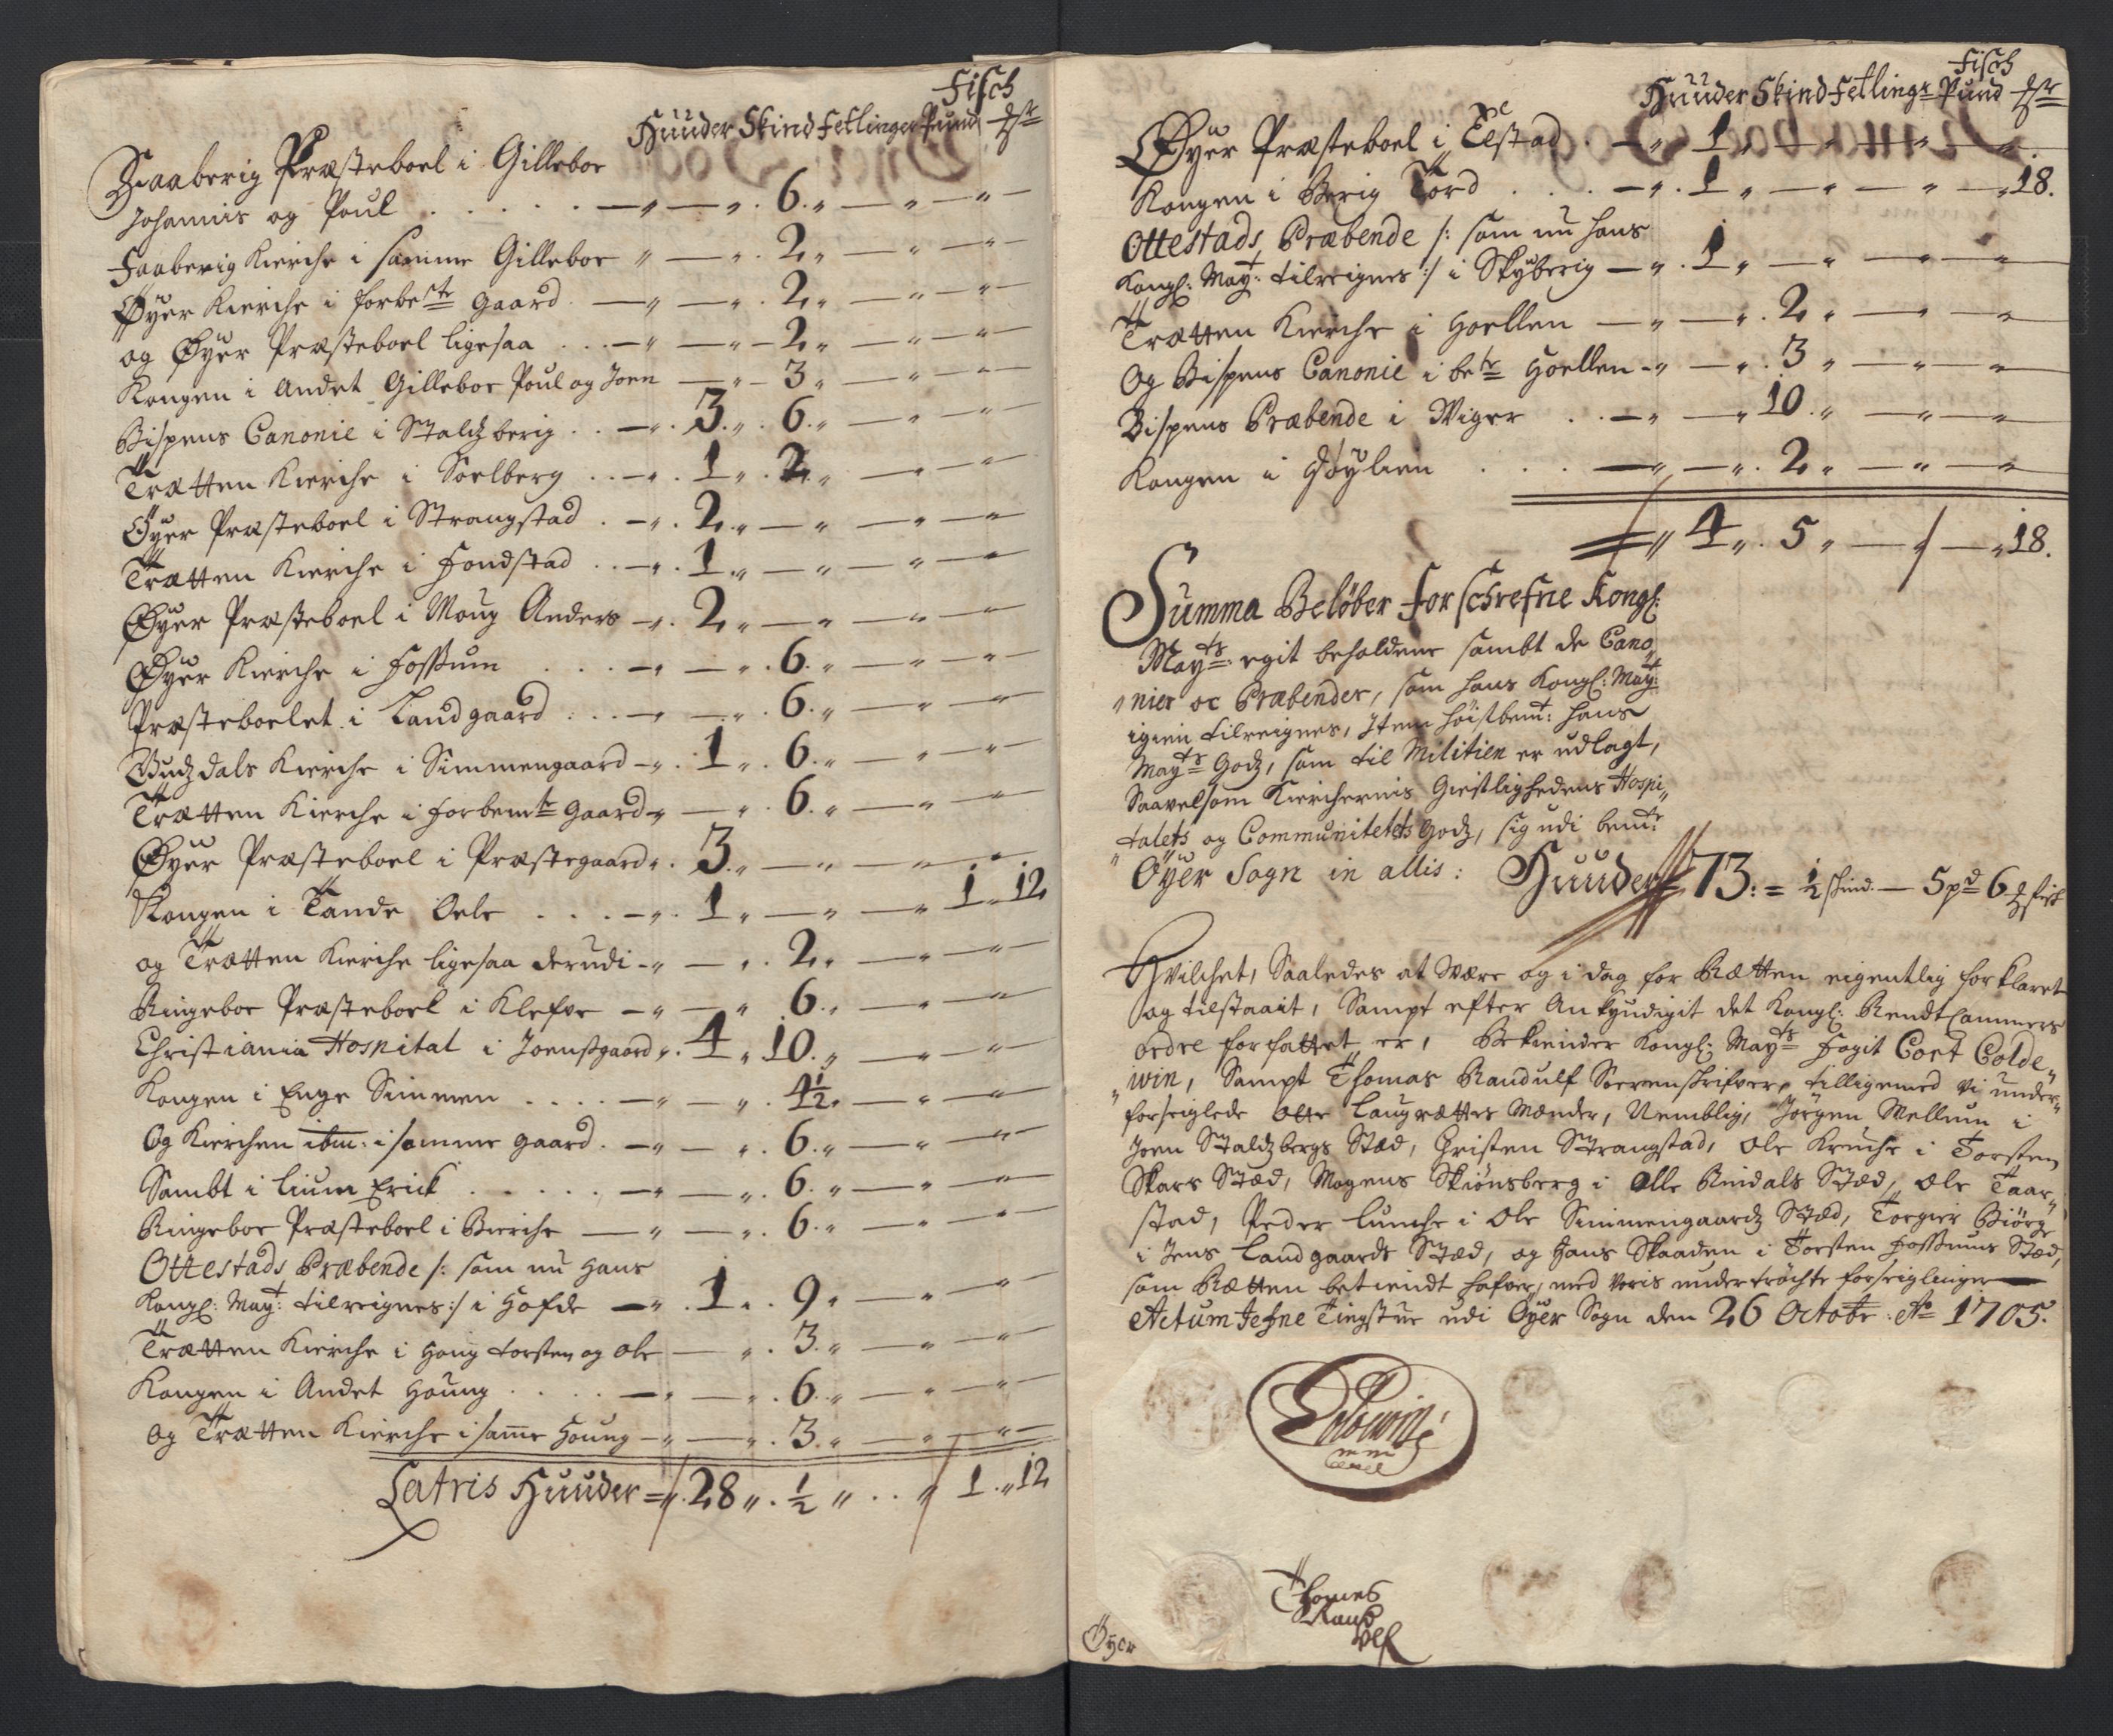 Fisch
Huuder Skind Fetlinger Pund
Faaberig Præsteboel i Gilleboe
Johannis og Poul . . . . . — „ — „ . 6. „ — „ — „ —
Faaberig Kierche i samme Gilleboe „ — „ . 2 „ — „ — „ —
Øyer Kierche i forbete Gaard . — „ — „ . 2 „ — „ — „ —
og Øyer Præsteboel ligesaa . . . — „ — „ — 2 „ — „ — „ —
Kongen i Andet Gilleboe Poul og Joen — „ — 3 „ — „ — „ —
Bispens Canonie i Staldzberig . . — „ . 3. „ . 6. „ — „ — „ —
Trætten Kierche i Soelberg . . . — „ . 1 „ . 2 „ — „ — „ —
Øyer Præsteboel i Strangstad . — „ . 2. „ — „ — „ — „ —
Trætten Kierche i Fondstad . . . — „ . 1. „ — „ — „ — „ —
Øyer Præsteboel i Moug Anders — „ . 2 „ — „ — „ — „ —
Øyer Kierche i Fossum . . . — „ — „ . 6. „ — „ — „ —
Præsteboelet i Landgaard . . . — „ — „ . 6. „ — „ — „ —
Gudzdals Kierche i Simmengaard — „ . 1 „ . 6. „ — „ — „ —
Trætten Kierche i forbemte Gaard „ — „ . 6. „ — „ — „ —
Øyer Præsteboel i Præstegaard „ . 3. „ — „ — „ — „ —
Kongen i Tande Oele . . . — „ . 1 „ — „ — „ 1 „ 12
og Trætten Kierche ligesaa derudi — „ — „ . 2 „ — „ — „ —
Ringeboe Præsteboel i Klefve — „ — „ 6. „ — „ — „ —
Christiania Hospital i Joenstgaard „ . 4 „ 10. „ — „ — „ —
Kongen i Enge Simmen . . . . — „ — „ . 4½ „ — „ — „ —
Og Kierchen ibm: i samme gaard . — „ — „ . 6. „ — „ — „ —
Sambt i Lium Erick . . . . . — „ — „ . 6. „ — „ — „ —
Ringeboe Præsteboel i Bierche — „ — „ . 6. „ — „ — „ —
Ottestads Præbende /: som nu Hans
Kongl: Mayt: tilreignes :/ i Hofde — „ . 1 „ . 9 „ — „ — „ —
Trætten Kierche i Houg torsten og ole — „ . 3. „ — „ —
Kongen i Andet Houng . . . . — „ — „ . 6. „ — „ — „ —
og Trætten Kierche i samme Houng — „ — „ . 3. „ — „ — „ —
Latris Huuder = „ . 28 „ . ½ „ . . „ 1. „ 12
Fisch
Huuder Skind Fetlingr Pund
Øyer Præsteboel i Elstad . — „ 1 „ — „ — „ —
Kongen i Berig Tord . . . — „ . 1 „ — „ — „ — „ 18.
Ottestads Præbende /: som nu hans
Kongl: Mayt: tilreignes :/ i Skyberig — „ . 1 „ — „ — „ —
Trætten Kierche i Hoellen — „ — „ . 2 „ — „ — „
Og Bispens Canonie i bete Hoellen — „ — „ . 3 „ — „ — „
Bispens Præbende i Wiger . . — „ — „ 10. „ — „ — „
Kongen i Høylien . . . — „ — „ . 2 „ — „ — „
= „ 4 „ . 5 „ — „ — „ 18.
Summa Beløber forschrefne Kongl:
Mayts: egit beholdene sambt de Cano„
„nier oc Præbender, som hans Kongl: Mayt:
igien tilreignes, Item høistbemt: hans
Mayts Godz, som til Militien er udlagt,
Saavelsom Kierchernis Giestlighedens Hospi„
„talets og Communitetets Godz, sig udi bemte
Øyer Sogn in allis: Huuder 73: = ½ skind — 5pd 6 fisk
Hvilchet, Saaledes at være og i dag for Rætten eigentlig forklaret
og tilstaait, Sampt efter Ankyndigit det Kongl: RendtCammers
ordre forfattet er, Bekiender Kongl: Mayts Fogit Cort Colde„
„win, Sampt Thomas Randulf Soerenskrifver, tilligemed Vi under„
forseiglede otte Laugrættes Mænder, Nemblig, Jørgen Mellum i
Joen Staldzbergs Stæd, Christen Strangstad, ole Kruche i Torsten
Skars Stæd, Mogens Skiønsberg i Olle Rindals Stæd, ole Taar„
stad, Peder Lunche i Ole Simmengaards Stæd, Torgier Biørge
i Jens Landgaards Stæd, og Hans Skaaden i Torsten Fossums Stæd,
som Rætten betiendt hafver, med Voris undertrøchte forseiglinger —
Actum Tingstue udi Øyer Sogn den 26 Octobr: Ao 1705.
Coldewin
Thomes
Rand
Ulf
Øyer